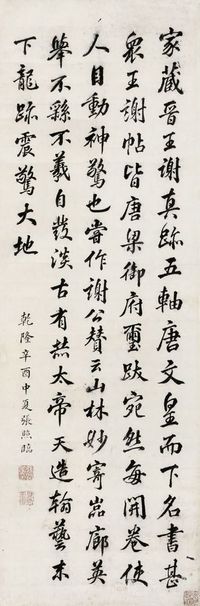 家藏晉王謝真跡五軸唐文皇而下名書甚
衆王謝帖皆唐梁御府璽跋宛然每開卷使
人目動神驚也嘗作謝公贊云山林妙寄嵓廊英
舉不繇不羲自發淡古有赫太帝天造翰藝末
下龍跡震驚大地
乾隆辛酉中夏張照臨